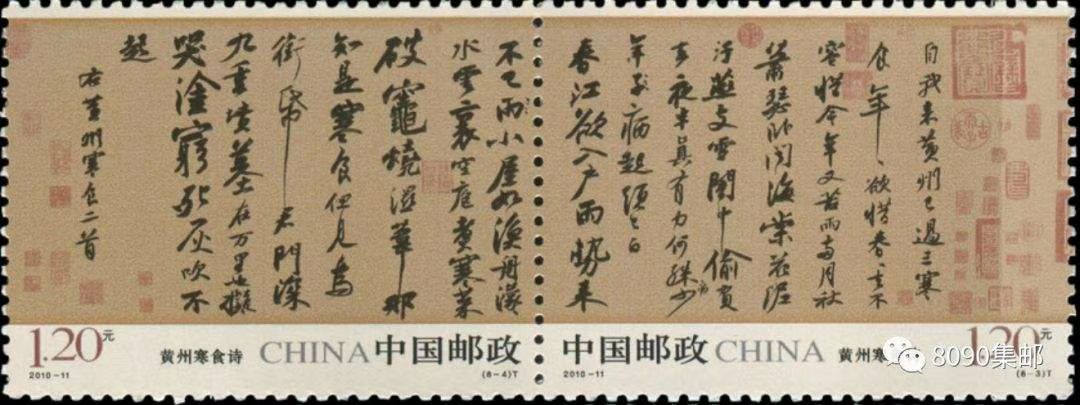 自我来黄州已過三寒
食年〻欲惜春〻去不
容惜今年又苦雨兩月秋
蕭瑟卧聞海棠花泥
汙燕支雪闇中偷負
去夜半真有力何殊少
年子病起頭已白
春江欲入戶雨勢来
不已雨小屋如漁舟濛〻
水雲裏空庖煮寒菜
破竈燒濕葦那
知是寒食但見烏
銜帋君門深
九重墳墓在万里也擬
哭塗窮死灰吹不
起
右黄州寒食二首
1.20元 黄州寒食诗 CHINA 中国邮政
2010-11 (6-4)T
中国邮政 CHINA 黄州寒 1.20元
2010-11 (6-3)T
8090集邮